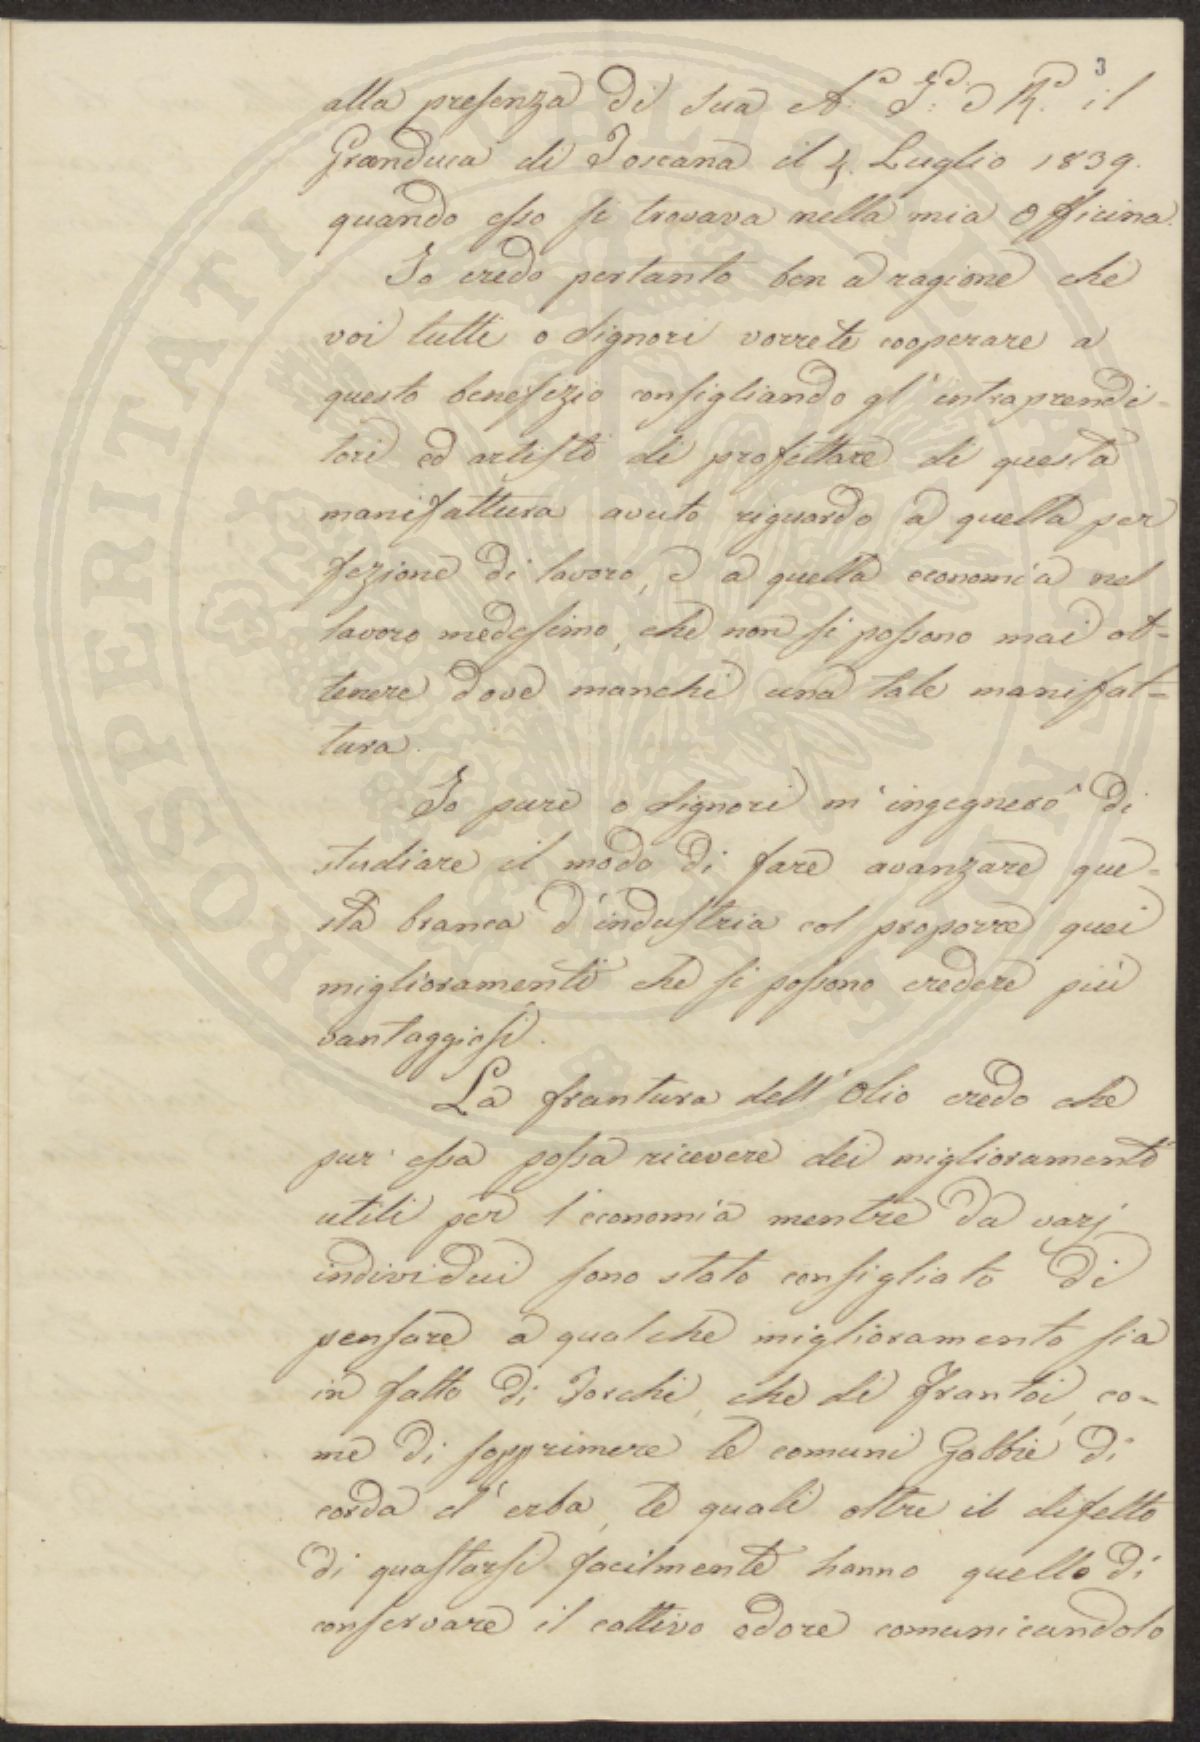 3
alla presenza di sua A. I. e R. il
Granduca di Toscana il 4. Luglio 1839.
quando esso si trovava nella mia Officina.
Io credo pertanto ben a ragione che
voi tutti o Signori vorrete cooperare a
questo benefizio consigliando gl'intraprendi-
tori ed artisti di profittare di questa
manifattura avuto riguardo a quella per
fezione di lavoro, e a quella economia nel
lavoro medesimo, che non si possono mai ot-
tenere dove manchi una tale manifat-
tura.
Io pure o Signori m'ingegnerò di
studiare il modo di fare avanzare que-
sta branca d'industria col proporre quei
miglioramenti che si possono credere più
vantaggiosi.
La frantura dell'Olio credo che
pur essa possa ricevere dei miglioramenti
utili per l'economia mentre da varj
individui sono stato consigliato di
pensare a qualche miglioramento sia
in fatto di Torchi, che di Frantoi, co-
me di sopprimere le comuni Gabbie di
corda d'erba, le quali oltre il difetto
di guastarsi facilmente hanno quello di
conservare il cattivo odore comunicandolo
PROSPERITATI PUBLICAE AUGENDAE